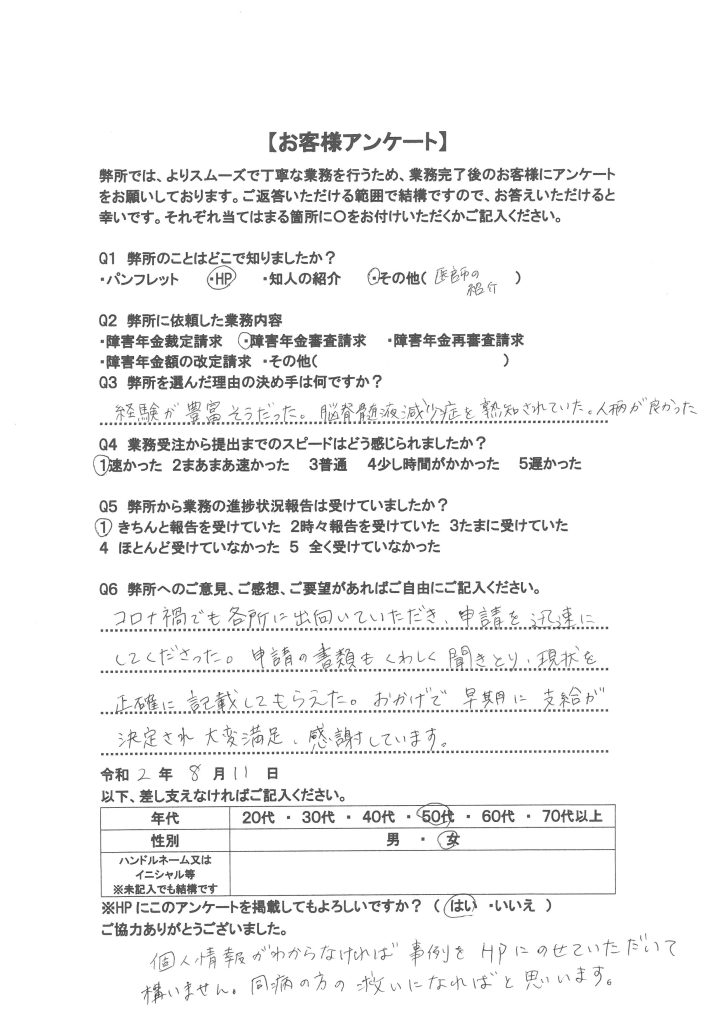 【お客様アンケート】
弊所では、よりスムーズで丁寧な業務を行うため、業務完了後のお客様にアンケート
をお願いしております。ご返答いただける範囲で結構ですので、お答えいただけると
幸いです。それぞれ当てはまる箇所に○をお付けいただくかご記入ください。
Q1 弊所のことはどこで知りましたか？
・パンフレット ・HP ・知人の紹介 ・その他( 医師の紹介 )
Q2 弊所に依頼した業務内容
・障害年金裁定請求 ・障害年金審査請求 ・障害年金再審査請求
・障害年金額の改定請求 ・その他( )
Q3 弊所を選んだ理由の決め手は何ですか？
経験が豊富そうだった。脳脊髄液減少症を熟知されていた。人柄が良かった
Q4 業務受注から提出までのスピードはどう感じられましたか？
1速かった 2まあまあ速かった 3普通 4少し時間がかかった 5遅かった
Q5 弊所から業務の進捗状況報告は受けていましたか？
1 きちんと報告を受けていた 2時々報告を受けていた 3たまに受けていた
4 ほとんど受けていなかった 5 全く受けていなかった
Q6 弊所へのご意見、ご感想、ご要望があればご自由にご記入ください。
コロナ禍でも各所に出向いていただき、申請を迅速に
してくださった。申請の書類もくわしく聞きとり、現状を
正確に記載してもらえた。おかげで早期に支給が
決定され大変満足、感謝しています。
令和 2 年 8 月 11 日
以下、差し支えなければご記入ください。
年代 20代 ・ 30代 ・ 40代 ・ 50代 ・ 60代 ・ 70代以上
性別 男 ・ 女
ハンドルネーム又は
イニシャル等
※未記入でも結構です
※HPにこのアンケートを掲載してもよろしいですか？ ( はい ・いいえ )
ご協力ありがとうございました。
個人情報がわからなければ事例をHPにのせていただいて
構いません。同病の方の救いになればと思います。